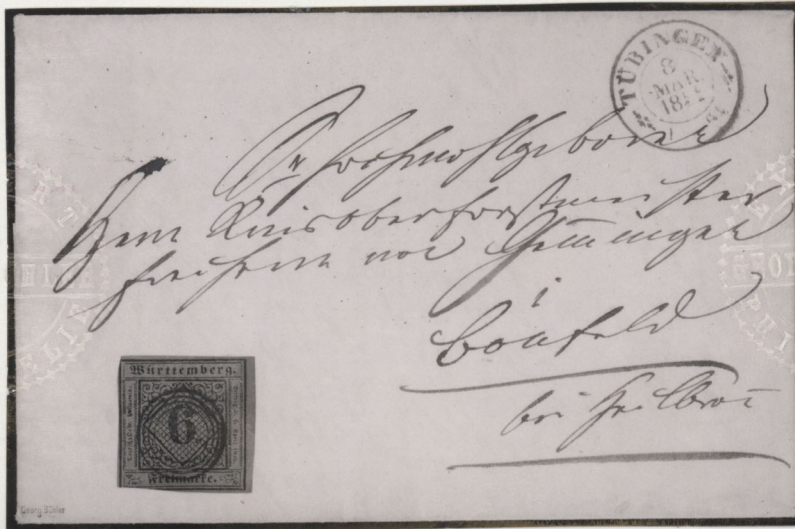 TÜBINGEN
8
MAR.
18
Sr Hochwohlgeboren
Herrn Kreisoberforstmeister
Freiherrn von Gemmingen
i
Bonfeld
bei Heilbron
Württemberg.
6
Freimarke.
Georg Bühler